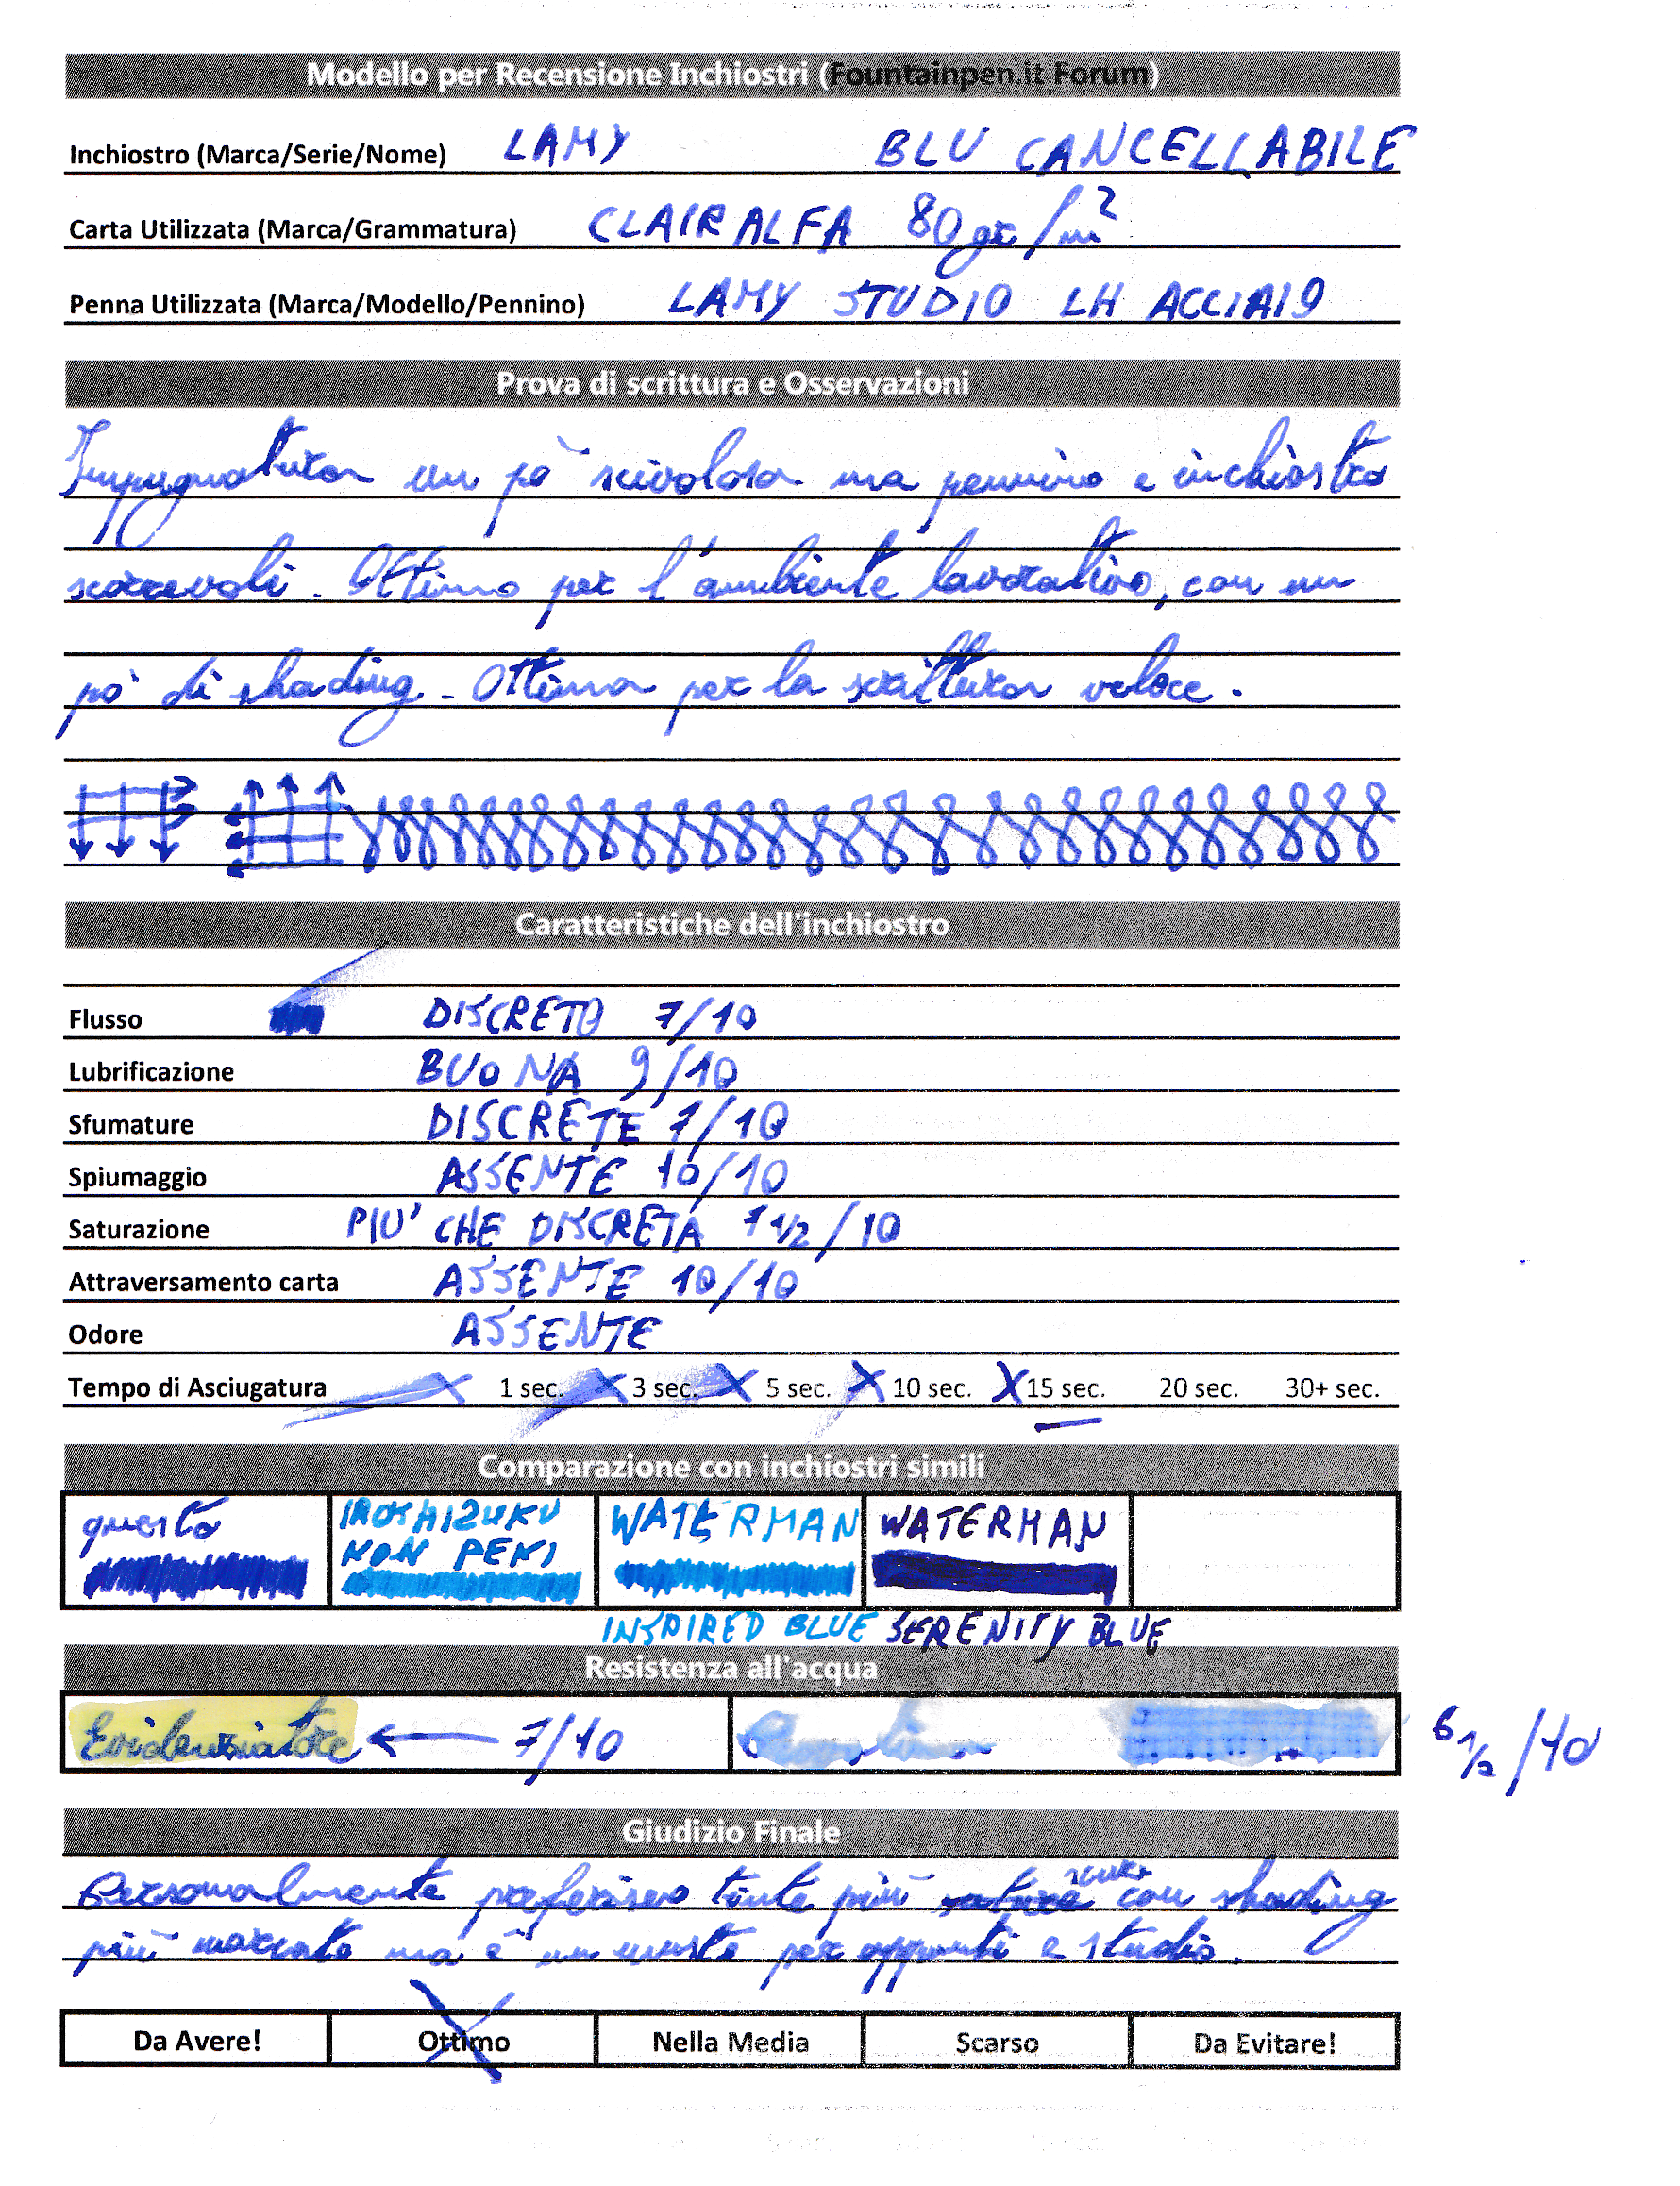 Modello per Recensione Inchiostri (Fountainpen.it Forum)
Inchiostro (Marca/Serie/Nome) LAMY BLU CANCELLABILE
Carta Utilizzata (Marca/Grammatura) CLAIRALFA 80 gr/m²
Penna Utilizzata (Marca/Modello/Pennino) LAMY STUDIO LH ACCIAIO
Prova di scrittura e Osservazioni
Impugnatura un pò scivolosa ma pennino e inchiostro
scorrevoli. Ottimo per l'ambiente lavorativo, con un
pò di shading. Ottima per la scrittura veloce.
Caratteristiche dell'inchiostro
Flusso DISCRETO 7/10
Lubrificazione BUONA 9/10
Sfumature DISCRETE 7/10
Spiumaggio ASSENTE 10/10
Saturazione PIU' CHE DISCRETA 7 1/2/10
Attraversamento carta ASSENTE 10/10
Odore ASSENTE
Tempo di Asciugatura X 1 sec. X 3 sec. X 5 sec. X 10 sec. X 15 sec. 20 sec. 30+ sec.
Comparazione con inchiostri simili
questo IROSHIZUKU WATERMAN WATERMAN
KON PEKI
INSPIRED BLUE SERENITY BLUE
Resistenza all'acqua
Evidenziatore 7/10 6 1/2/10
Giudizio Finale
Personalmente preferisco tinte più scure con shading
più marcato ma è un must per appunti e studio.
Da Avere! Ottimo Nella Media Scarso Da Evitare!